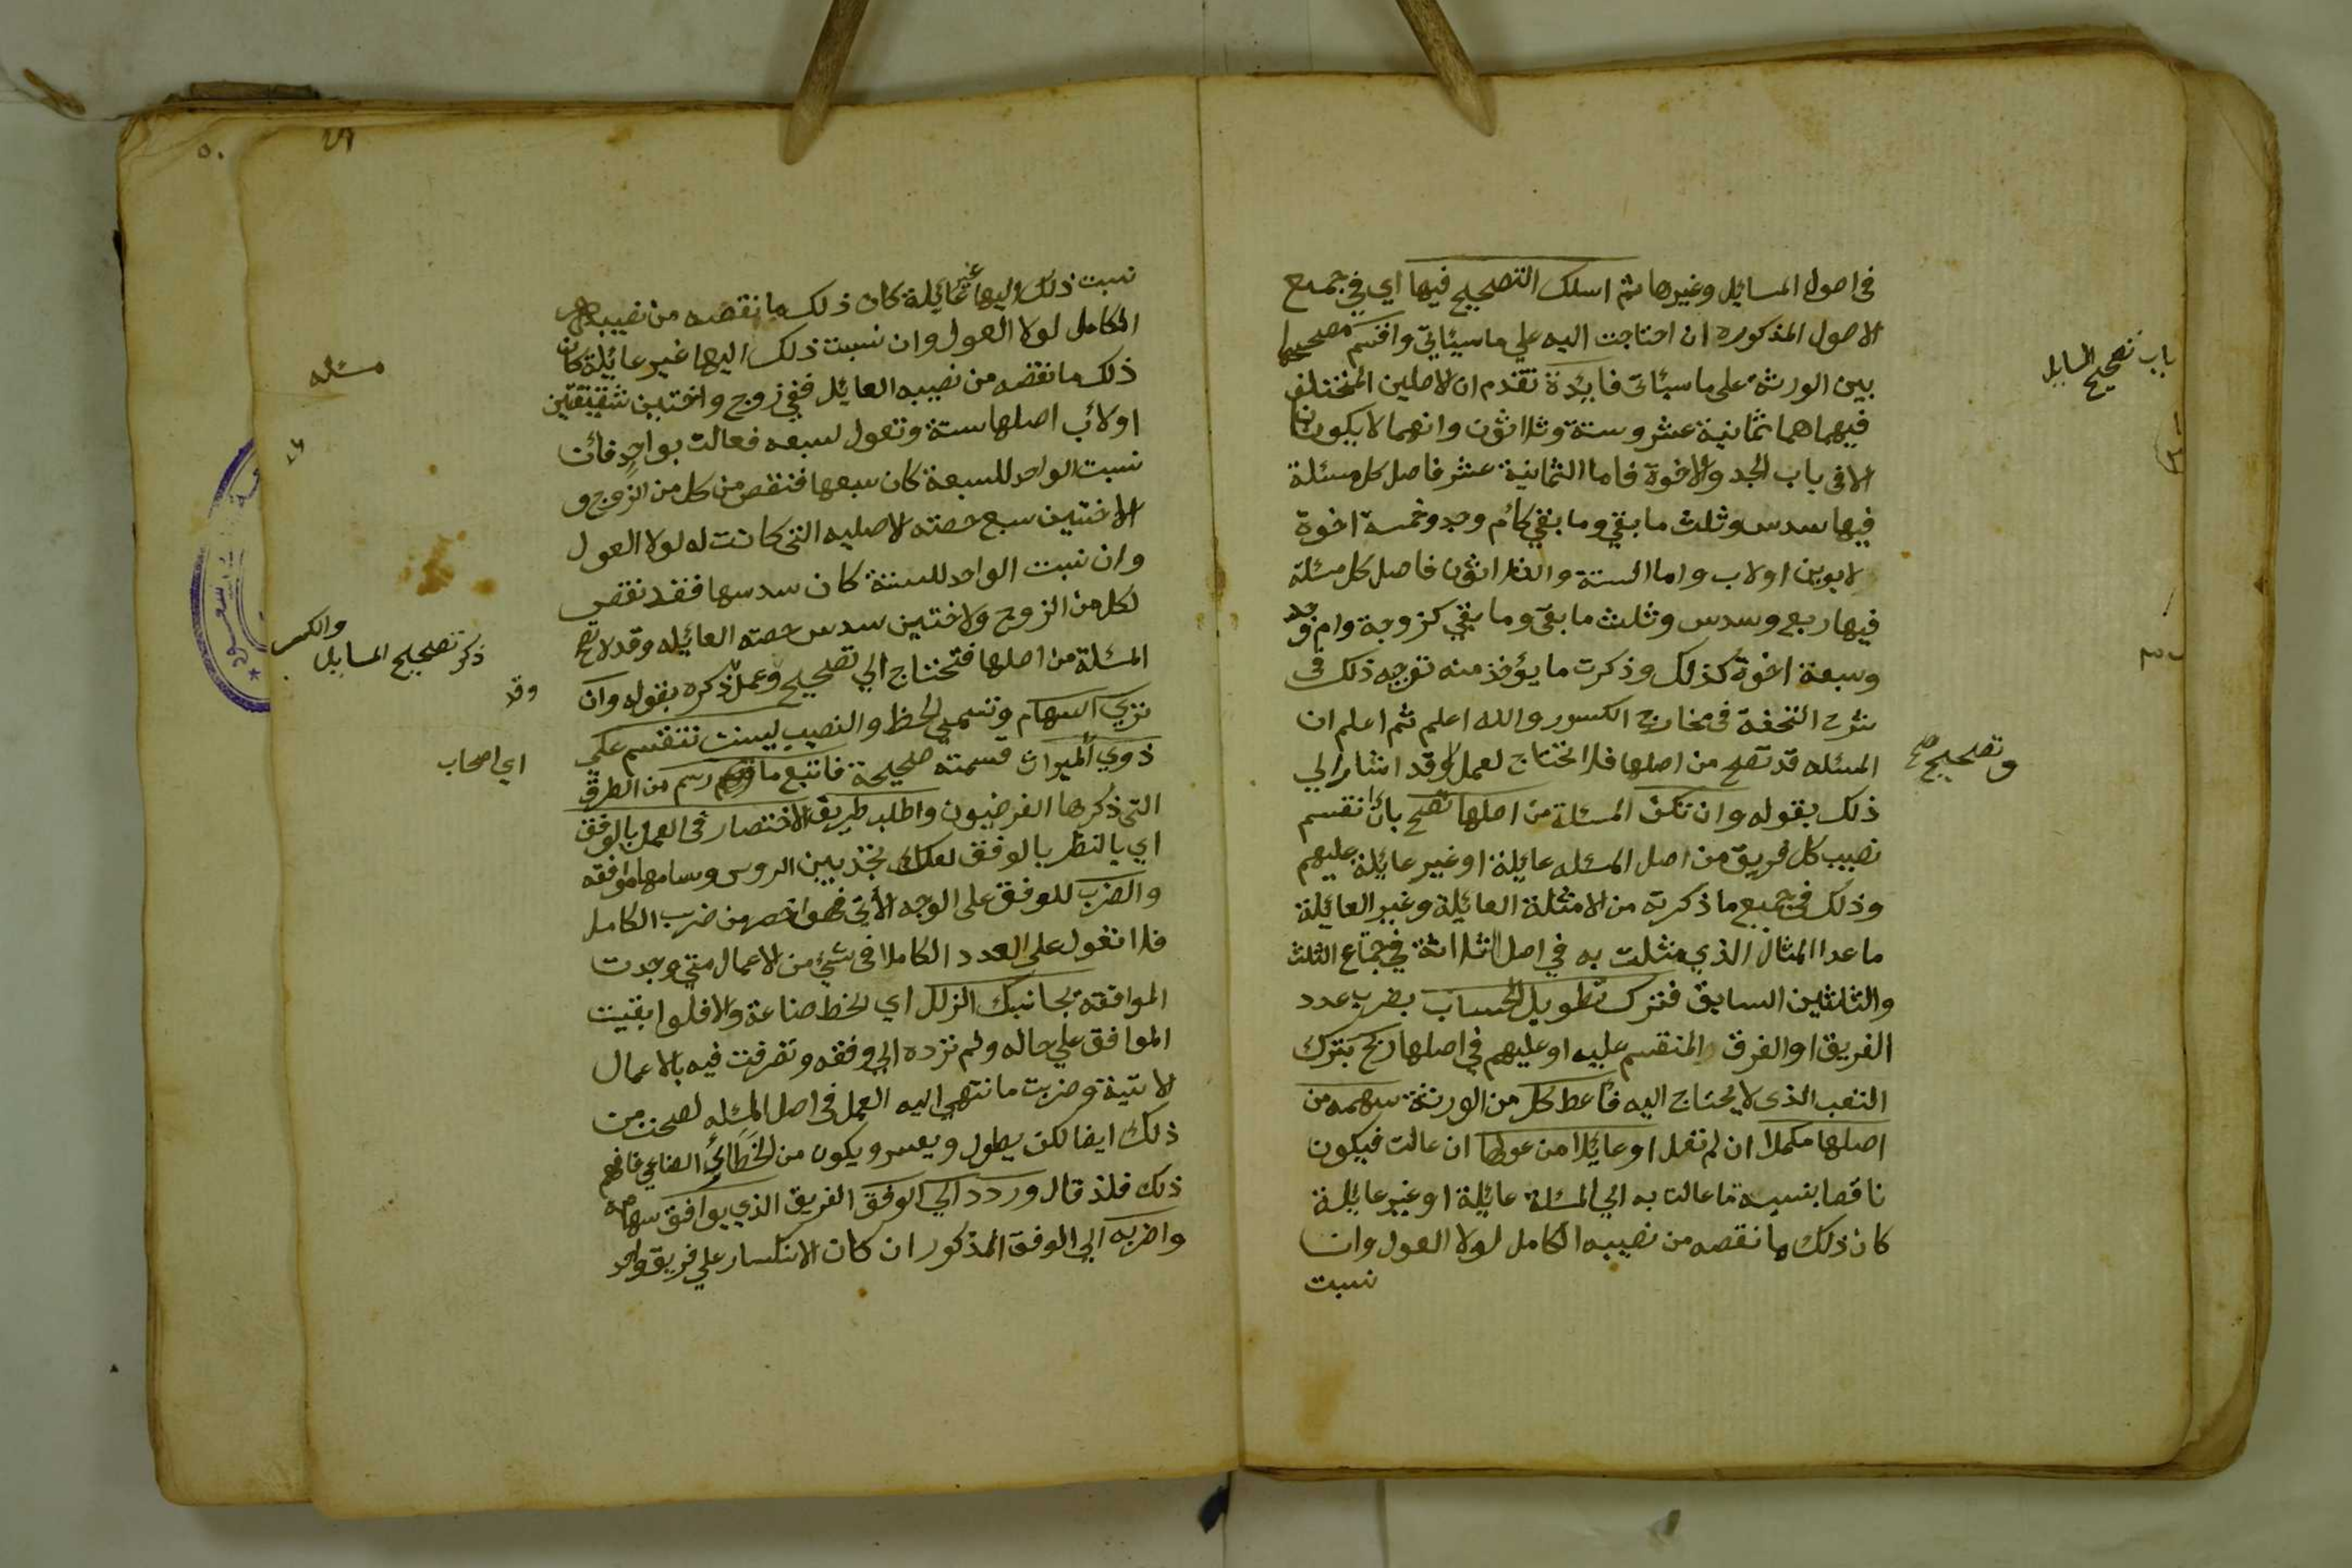 في اصول المسايل وغيرها ثم اسلك التصحيح فيها اي في جميع
الاصول المذكوره ان احتاجت اليه علي ماسيئاتي واقسم مصححها
بين الورثة على ما سيئاتى فايدة تقدم ان الاصلين المختلف
فيهما هما ثمانية عشر وستة وثلاثون وانهما لا يكونان
الا فى باب الجد والاخوة فاما الثمانية عشر فاصل كل مسئلة
فيها سدس وثلث ما بقي وما بقي كام وجد وخمسة اخوة
لابوين او لاب واما الستة والثلاثون فاصل كل مسئلة
فيها ربع وسدس وثلث ما بقى وما بقي كزوجة وام وجد
وسبعة اخوة كذلك وذكرت ما يؤخذ منه توجيه ذلك فى
شرح التحفة فى مخارج الكسور والله اعلم ثم اعلم ان
المسئله قد تصح من اصلها فلا تحتاج لعمل وقد اشار الي
ذلك بقوله وان تكن المسئلة من اصلها تصح بان انقسم
نصيب كل فريق من اصل المسئله عايلة او غير عايلة عليهم
وذلك في جميع ما ذكرته من الامثلة العائلة وغير العائلة
ما عدا المثال الذي مثلت به في اصل الثلاثة في اجتماع الثلث
والثلثين السابق فترك تطويل الحساب بضرب عدد
الفريق او الفرق المنقسم عليه او عليهم في اصلها ربح بترك
التعب الذى لا يحتاج اليه فاعط كل من الورثة سهمه من
اصلها مكملا ان لم تعل او عائلا من عولها ان عالت فيكون
ناقصا بنسبة ما عالت به الي المسئلة عائلة او غير عايلة
كان ذلك ما نقصه من نصيبه الكامل لولا العول وان
نسبت
باب تصحيح المسايل
وتصحيح صح
نسبت ذلك اليها غير عائلة كان ذلك ما نقصه من نصيبه
الكامل لولا العول وان نسبت ذلك اليها غير عايلة كان
ذلك ما نقصه من نصيبه العائل ففي زوج واختين شقيقتين
او لاب اصلها ستة وتعول لسبعه فعالت بواحد فان
نسبت الواحد للسبعة كان سبعها فنقص من كل من الزوج و
الاختين سبع حصته الاصليه التى كانت له لولا العول
وان نسبت الواحد للستة كان سدسها فقد نقص
لكل من الزوج ولاختين سدس حصته العائله وقد لا تصح
المسئلة من اصلها فتحتاج الي تصحيح وعمل ذكره بقوله وان
تري السهام وتسمي الحظ والنصيب ليست تنقسم على
ذوي الميراث قسمته صحيحة فاتبع ما رسم من الطرق
التى ذكرها الفرضيون واطلب طريق الاختصار فى العمل بالوفق
اي بالنظر بالوفق لعلك تجد بين الروس وسهامها موافقه
والضرب للوفق على الوجه الآتي فهو اخصر من ضرب الكامل
فلا تعول على العدد الكامل فى شيئ من الاعمال متي وجدت
الموافقة بجانبك الزلل اي الخطا صناعة والا فلو ابقيت
الموافق علي حاله ولم ترده الي وفقه وتصرفت فيه بالاعمال
لاتية وضربت ما انتهي اليه العمل فى اصل المسئله لصحت من
ذلك ايضا لكن يطول ويعسر ويكون من الخطائ الصناعي فافهم
ذلك فلذ قال وردد الي الوفق الفريق الذي يوافق سهامه
واضربه اي الوفق المذكور ان كان الانكسار علي فريق واحد
مسئله
ذكر تصحيح المسايل والكسر
وقد
اي اصحاب
٥٠